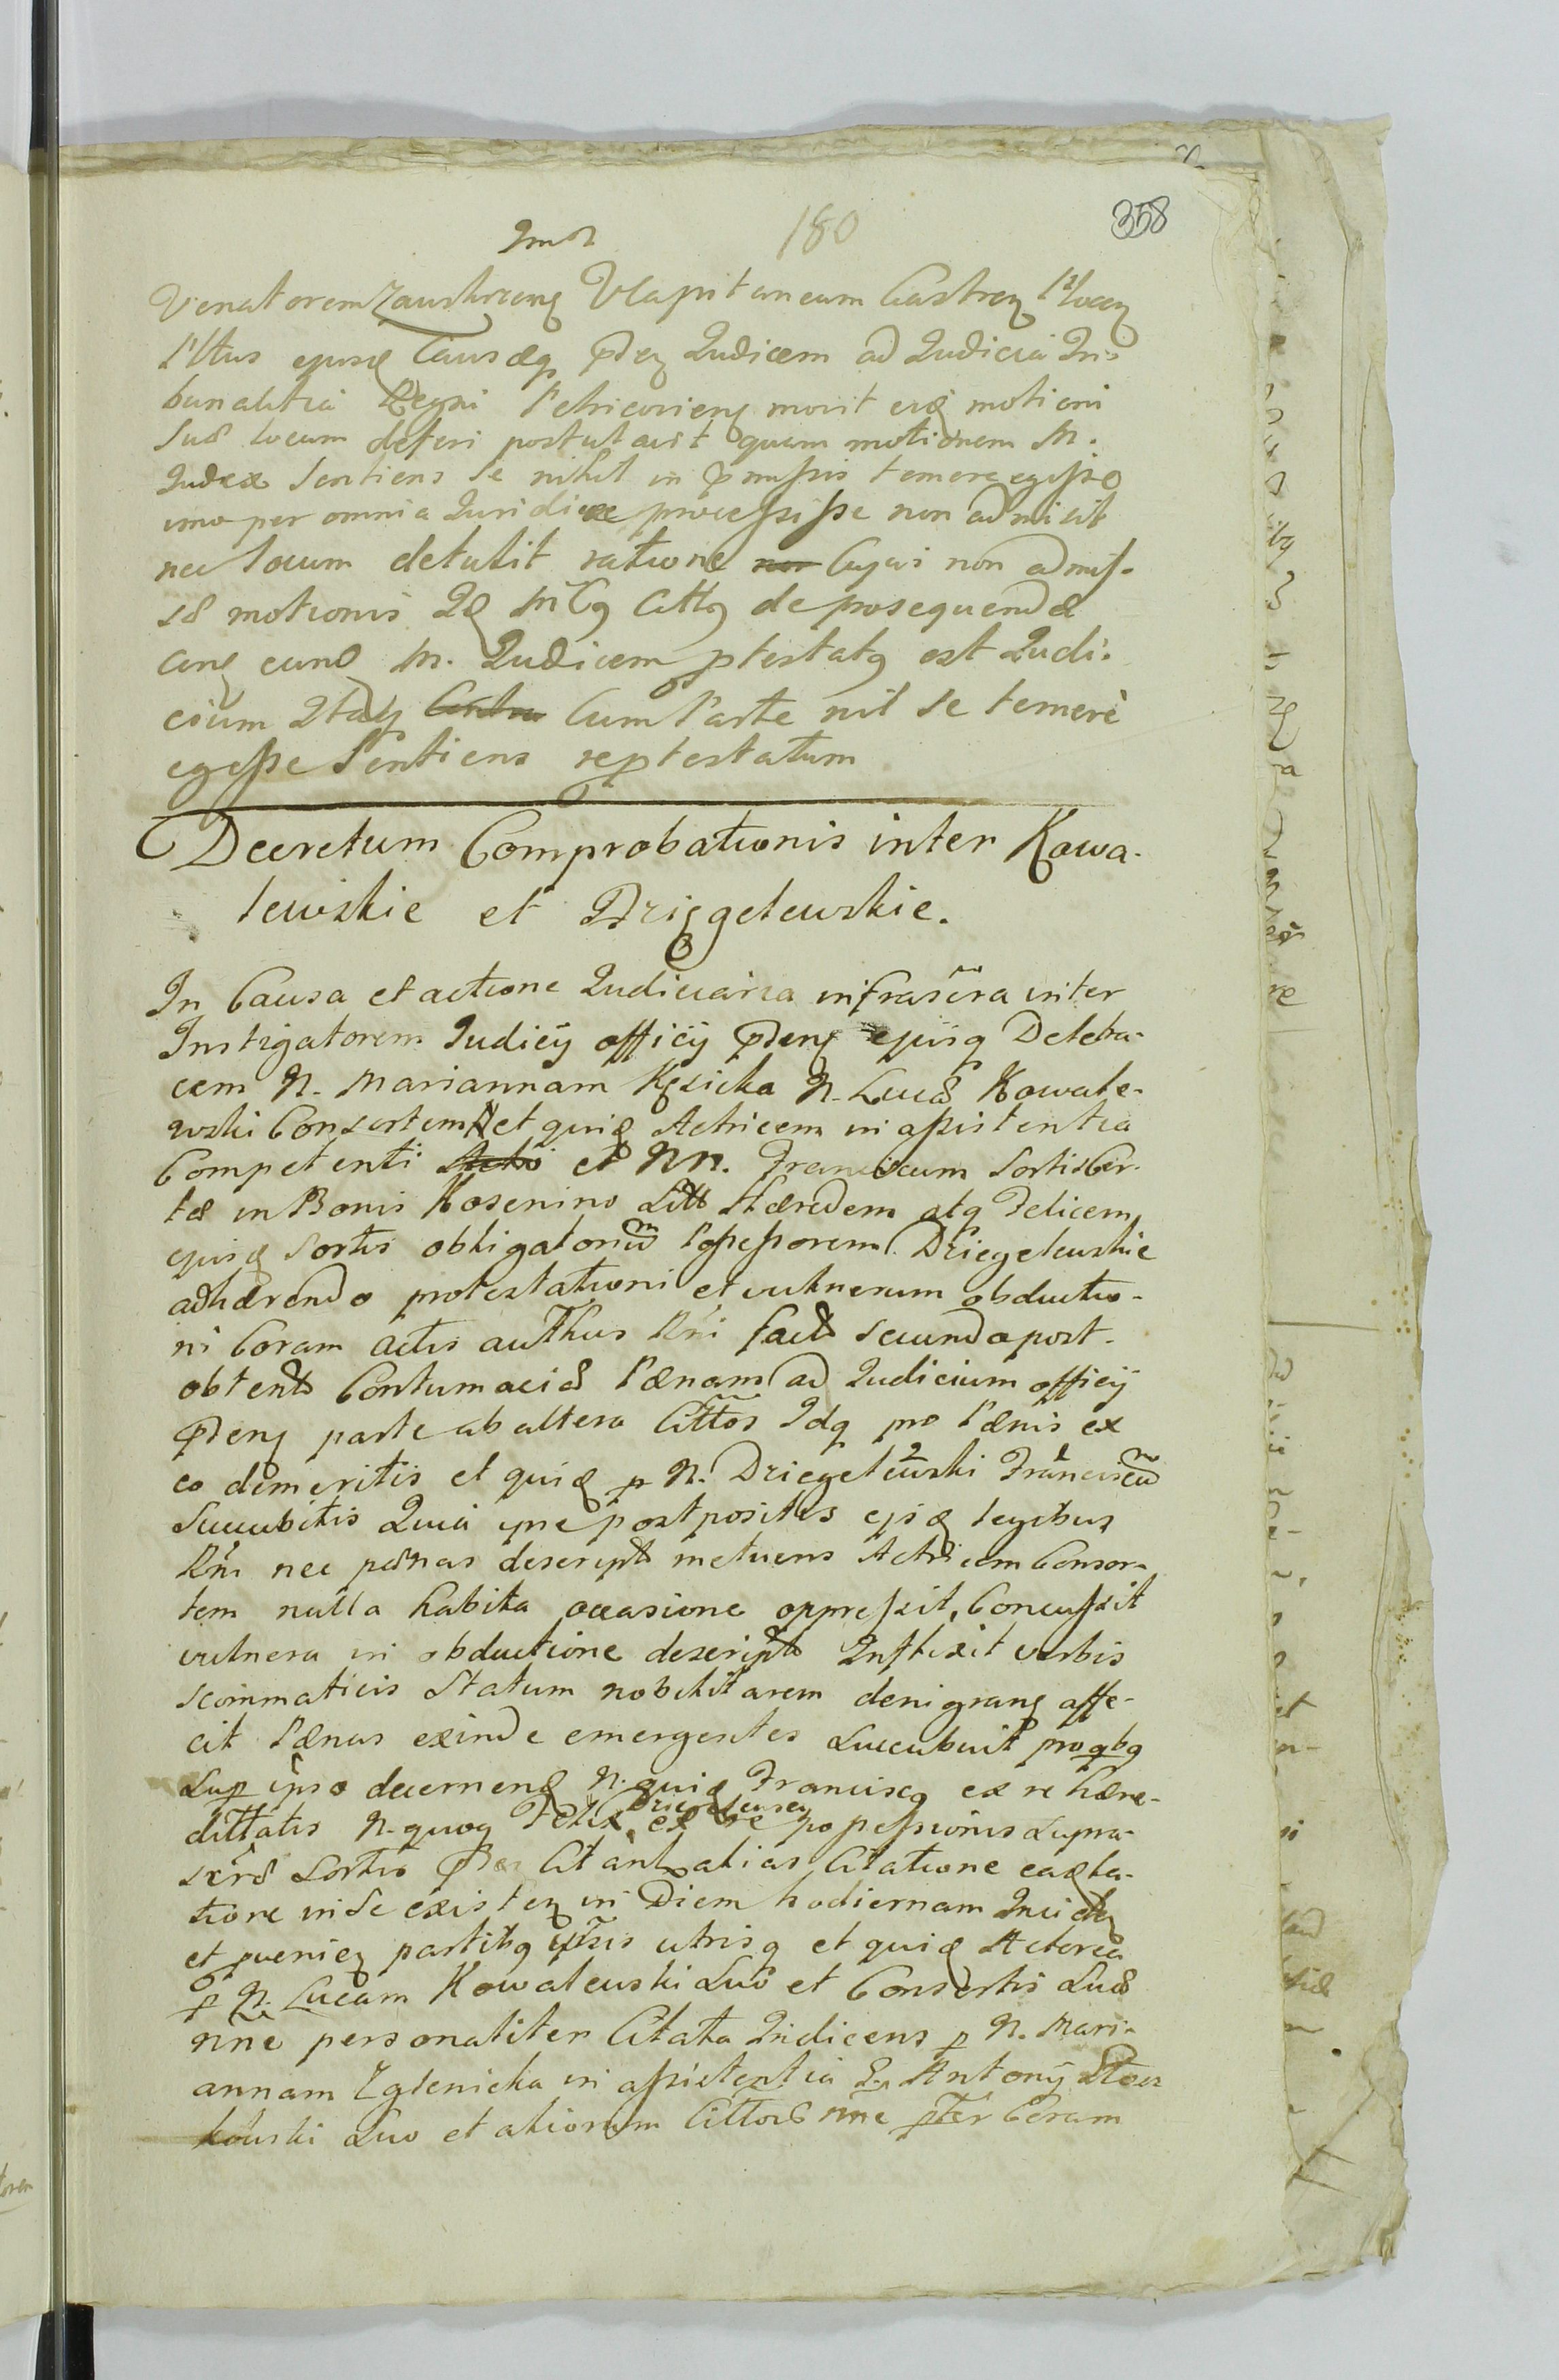 180
358
Venatorem Zauskrzeng VCapitaneum Castren Plocen
Pltus ejusq Causæq Pden Judicem ad Judicia Tri-
bunalitia Regni Petricoviens movit eiq motioni
Suæ locum deferi postulavit quam motionem M.
Judex Sentiens Se nihil in præmissis temere egisse
imo per omnia Juridice processisse non admisit
nec locum detulit ratione Cujus non admis-
sæ motionis de prosequenda
cum eund M. Judicem ptestatq est Judi-
cium Cum Parte nil Se temerè
egesse Sentiens reptestatum
Decretum Comprobationis inter Kowa-
lewskie et Dzięgelewskie.
In Causa et actione Judiciaria infrascra inter
Instigatorem Judicÿ officÿ Pdeng ejusq Delela-
cem N. Mariannam Kęsicka N. Lucæ Kowale-
wski Consortem et quidq Actricem in assistentia
Competenti et NN. Franciscum Sortis Cer-
tæ in Bonis Kosenino Litt Hæredem atq Felicem
ejusq Sortis obligatorium Possessorem Dziegelewskie
adhærendo protestationi et vulnerum obductio-
ni Coram actis authus Rni factæ secundo post
obtentæ Contumaciæ Pænam ad Judicium officÿ
Pdeng parte ab altera Cittos Idq pro Pænis ex
eo demeritis et quidq p N. Dziegelewski Franciscum
Succubitis Quia ipse postpositis ejsq legibus
Rni nec pænas descriptas metuens Actricem Consor-
tem nulla habita occasione oppressit, Concussit
vulnera in obductione descripta Inflixit verbis
scommaticis Statum nobilitarem denigrang affe-
cit Pænas exinde emergentes Succubuit pro qbq
Sup ipso decernend N. quidq Francisc ex re hære-
dittatis N. quoq Felix Dziegelewscy ex re possessionis Supra-
scræ Sortis Citant alias Citatione eaq la-
tione in Se existen in Diem hodiernam Inciden
et pvenien partibq ipsis utrisq et quidq Actorea
p N. Lucam Kowalewski Suo et Consortis Suæ
nne personaliter Citata Indicens p N. Mari-
annam Zglenicka in assistentia Antonÿ
kowski Suo et aliorum Cittor nne pter Coram